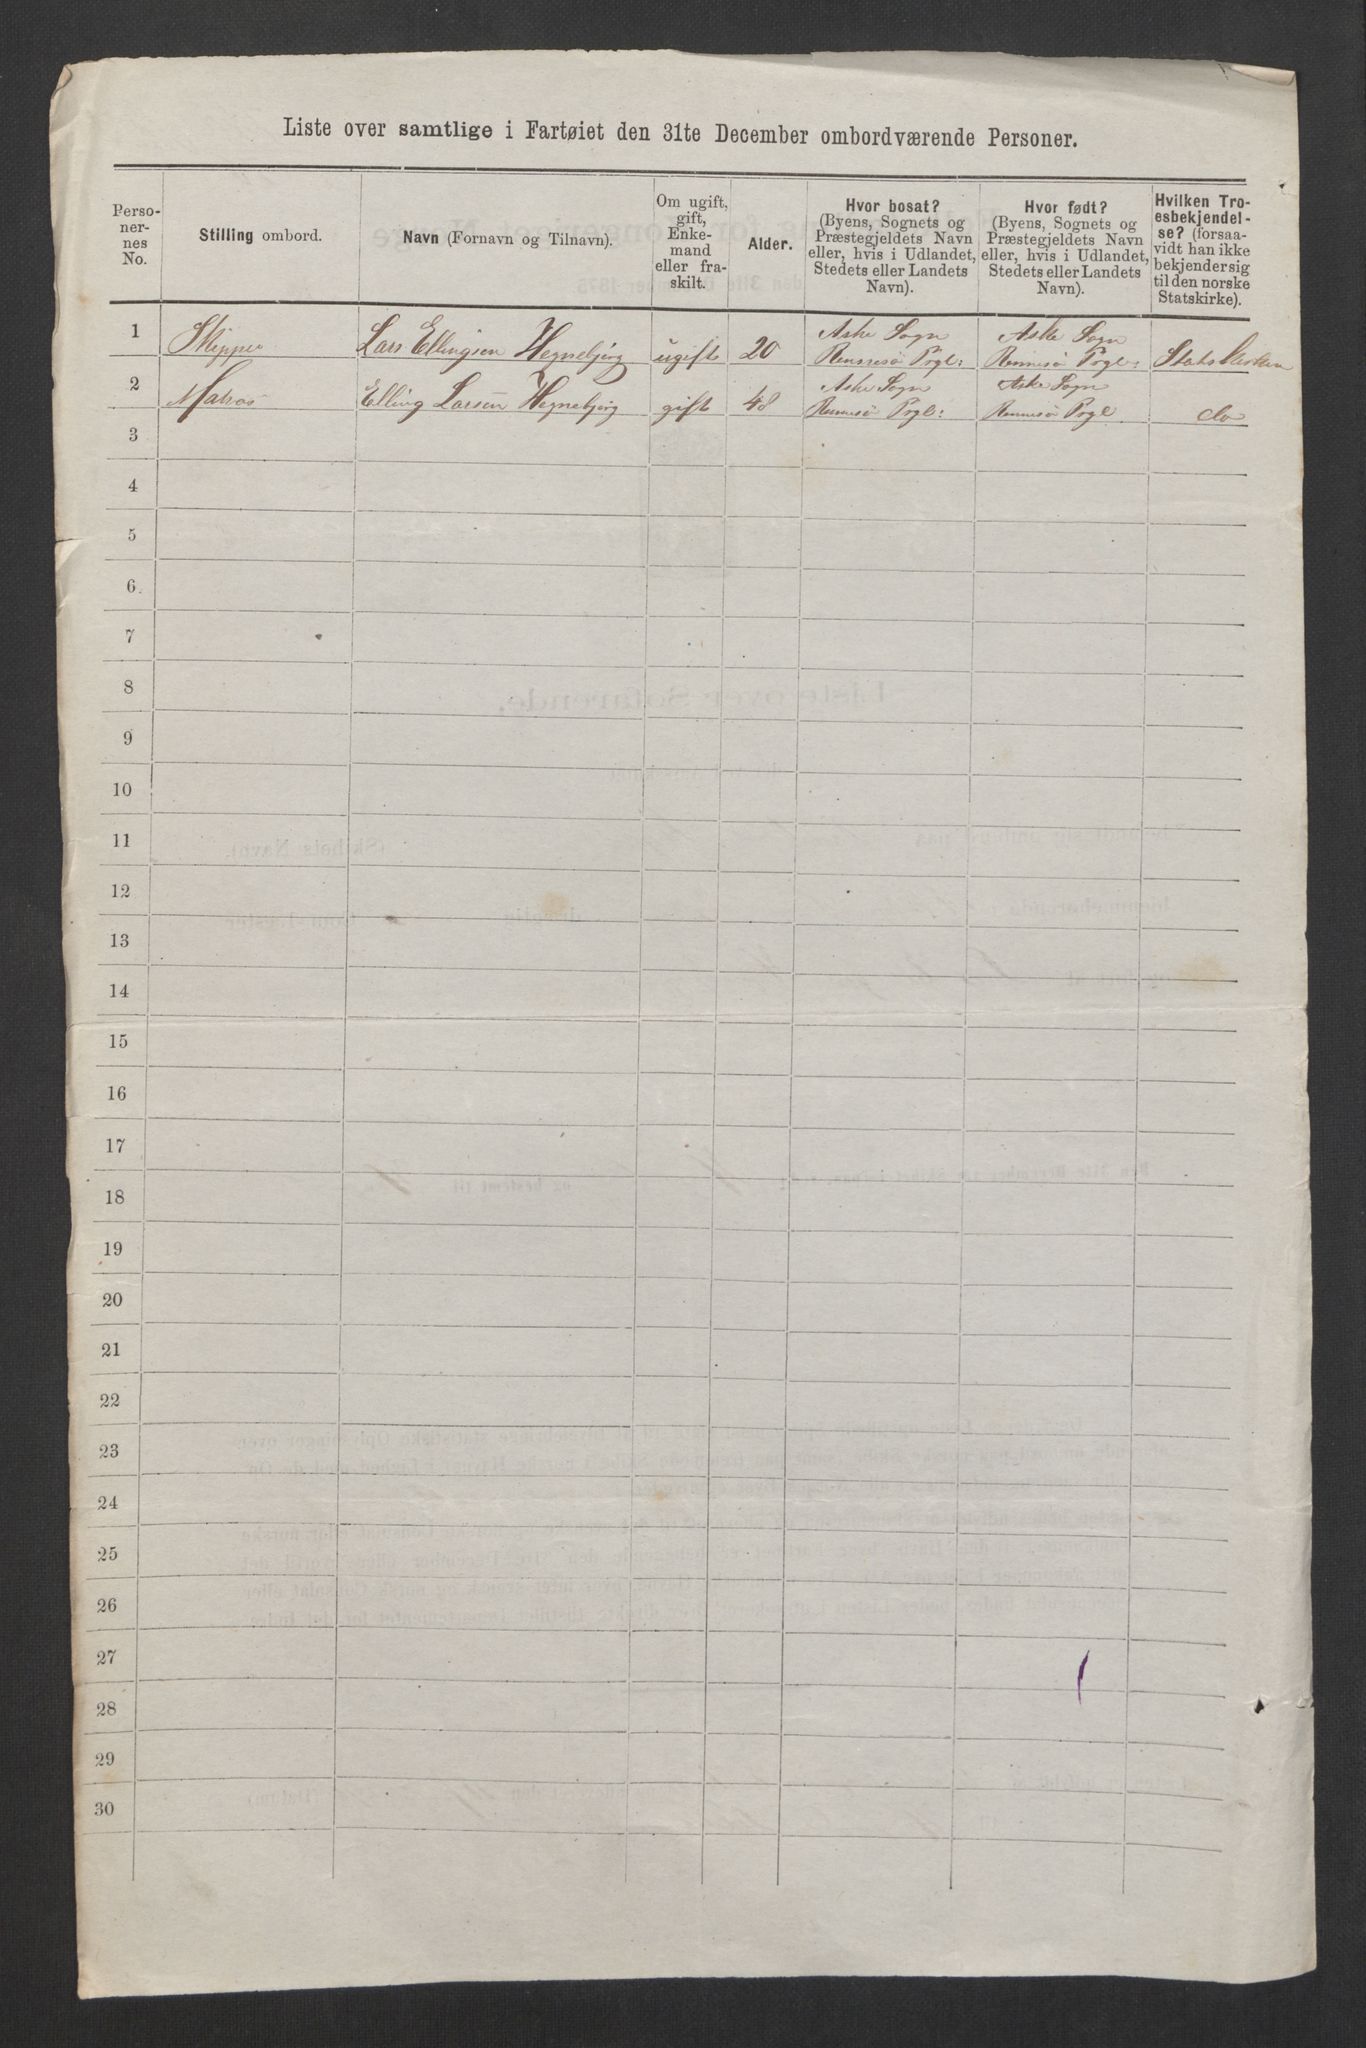 Liste over samtlige i Fartøiet den 31te December ombordværende Personer.
Perso-
ner-
nes
No.
Stilling ombord.
Navn (Fornavn og Tilnavn).
Om ugift,
gift,
Enke-
mand
eller fra-
skilt.
Alder.
Hvor bosat?
(Byens, Sognets og
Præstegjeldets Navn
eller, hvis i Udlandet,
Stedets eller Landets
Navn).
Hvor født?
(Byens, Sognets og
Præstegjeldets Navn
eller, hvis i Udlandet,
Stedets eller Landets
Navn).
Hvilken Tro-
esbekjendel-
se? (forsaa-
vidt han ikke
bekjender sig
til den norske
Statskirke).
1 Skipper Lars Ellingsen Hegnebjørg ugift 20
Aske Sogn
Rennesö Prgl:
Aske Sogn
Rennesö Prgl:
Statskirken
2 Matros Elling Larsen Hegnebjørg gift 48
Aske Sogn
Rennesö Prgl:
Aske Sogn
Rennesö Prgl
do
3
4
5
6
7
8
9
10
11
12
13
14
15
16
17
18
19
20
21
22
23
24
25
26
27
28
29
30